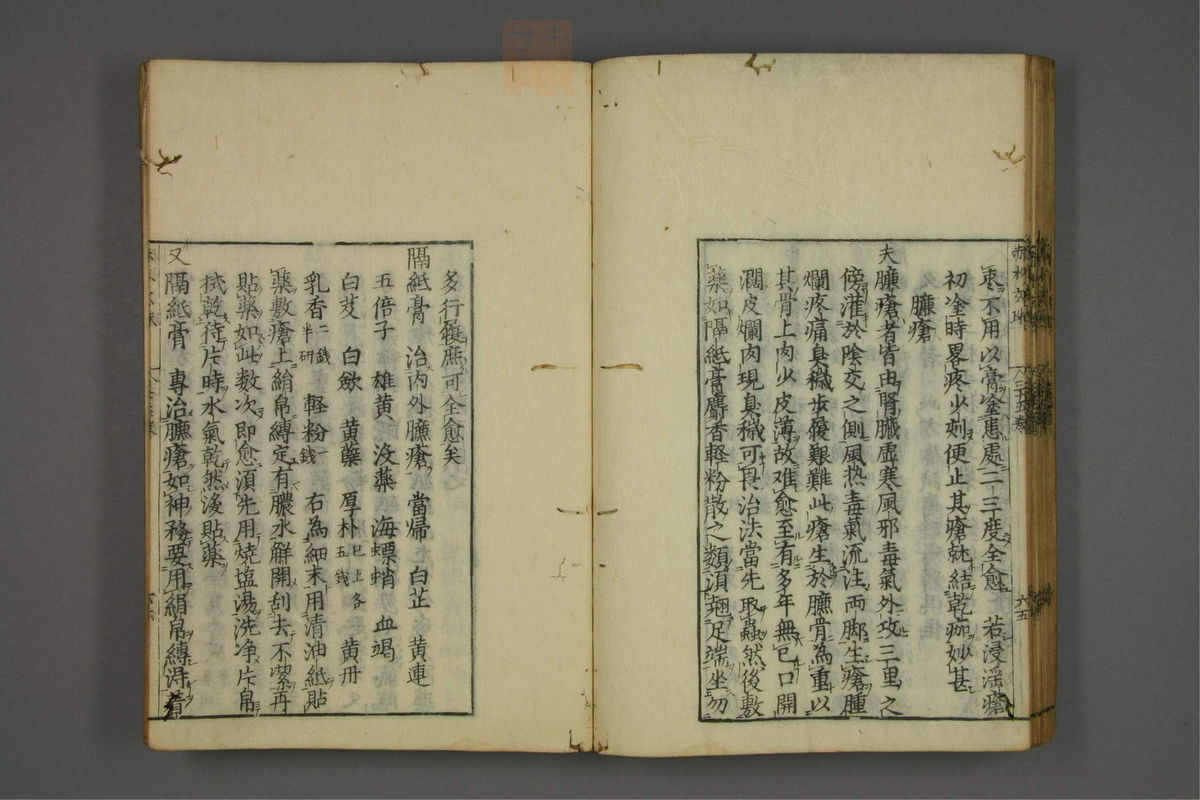 棗不用以膏塗患處二三度全愈　若浸淫瘡
初塗時畧疼少刻便止其瘡就結乾痂妙甚
臁瘡
夫臁瘡者皆由腎臟虛寒風邪毒氣外攻三里之
傍灌於陰交之側風热毒氣流注兩脚生瘡腫
爛疼痛臭穢步履艱難此瘡生於臁骨為重以
其骨上肉少皮薄故难愈至有多年無已口開
濶皮爛肉現臭穢可畏治法當先取蟲然後敷
藥如隔紙膏麝香軽粉散之類須翹足端坐勿
多行履庶可全愈矣
隔紙膏　治內外臁瘡　當歸　白芷　黄連
五倍子　雄黄　没藥　海螵蛸　血竭
白芨　白歛　黄蘗　厚朴已上各五錢　黄丹
乳香二錢半研　軽粉一錢　右為細末用清油紙貼
藥敷瘡上絹帛縛定有膿水解開刮去不潔再
貼藥如此数次即愈須先用燒塩湯洗净片帛
拭乾待片時水氣乾然後貼藥
又隔紙膏　專治臁瘡如神務要用絹帛縛淂着
三十五卷
六五